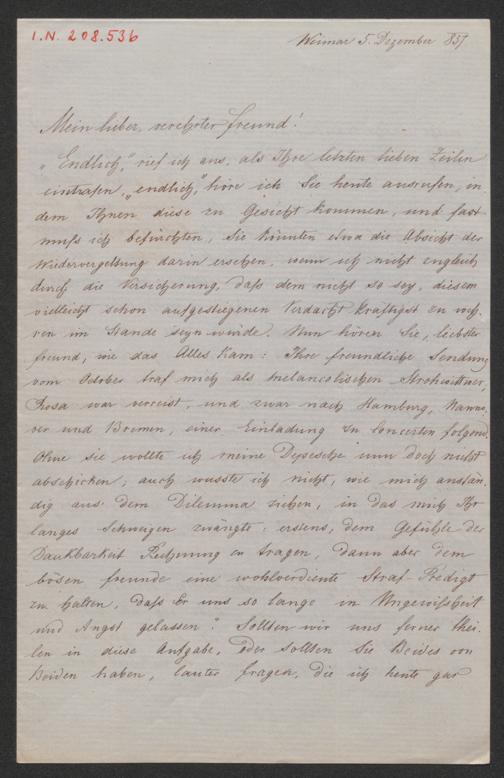 I.N. 208.536
Weimar 5. Dezember 857
Mein lieber, verehrter Freund!
„Endlich," rief ich aus, als Ihre letzten lieben Zeilen
eintrafen, „endlich," höre ich Sie heute ausrufen, in
dem Ihnen diese zu Gesicht kommen, und fast
muß ich befürchten, Sie könnten etwa die Absicht der
Wiedervergeltung darin ersehen, wenn ich nicht sogleich
durch die Versicherung, daß dem nicht so sey, diesem
vielleicht schon aufgestiegenen Verdacht kräftigst zu weh-
ren im Stande seyn würde. Nun hören Sie, liebster
Freund, wie das Alles kam: Ihre freundliche Sendung
vom October traf mich als melancolischen Strohwittwer,
Rosa war verreist, und zwar nach Hamburg, Hanno-
ver und Bremen, einer Einladung zu Concerten folgend.
Ohne sie wollte ich meine Depesche nun doch nicht
abschicken; auch wusste ich nicht, wie mich anstän-
dig aus dem Dilemma ziehen, in das mich Ihr
langes Schweigen zwängte: erstens, dem Gefühle der
Dankbarkeit Rechnung zu tragen, dann aber dem
bösen Freunde eine wohlverdiente Straf-Predigt
zu halten, daß Er uns so lange in Ungewißheit
und Angst gelassen". Sollten wir uns ferner thei-
len in diese Aufgabe, oder sollten Sie Beides von
Beiden haben, lauter Fragen, die ich heute gar